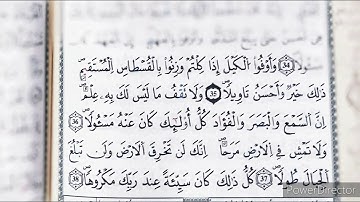 مَسْئُولًا ﴿34﴾ وَاَوْفُوا الْكَيْلَ اِذَا كِلْتُمْ وَزِنُوا بِالْقِسْطَاسِ الْمُسْتَق۪يمِۜ
ذٰلِكَ خَيْرٌ وَاَحْسَنُ تَأْو۪يلًا ﴿35﴾ وَلَا تَقْفُ مَا لَيْسَ لَكَ بِه۪ عِلْمٌۜ
اِنَّ السَّمْعَ وَالْبَصَرَ وَالْفُؤٰادَ كُلُّ اُو۬لٰٓئِكَ كَانَ عَنْهُ مَسْؤُ۫لًا ﴿36﴾
وَلَا تَمْشِ فِي الْاَرْضِ مَرَحًاۚ اِنَّكَ لَنْ تَخْرِقَ الْاَرْضَ وَلَنْ تَبْلُغَ
الْجِبَالَ طُولًا ﴿37﴾ كُلُّ ذٰلِكَ كَانَ سَيِّئُهُ عِنْدَ رَبِّكَ مَكْرُوهًا ﴿38﴾
PowerDirector